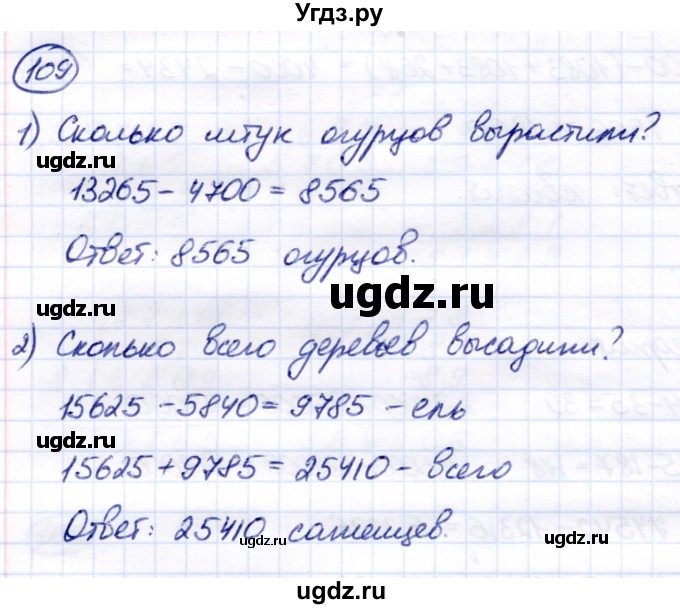 Угдз.ру
109
1) Сколько штук огурцов вырастили?
ugdz.ru
13265 - 4700 = 8565
Ответ: 8565 огурцов.
ugdz.ru
ugdz.ru
ugdz.ru
2) Сколько всего деревьев высадили?
15625 - 5840 = 9785 - ель
ugdz.ru
15625 + 9785 = 25410 - всего
Ответ: 25410 саженцев.
ugdz.ru
ugdz.ru
ugdz.ru